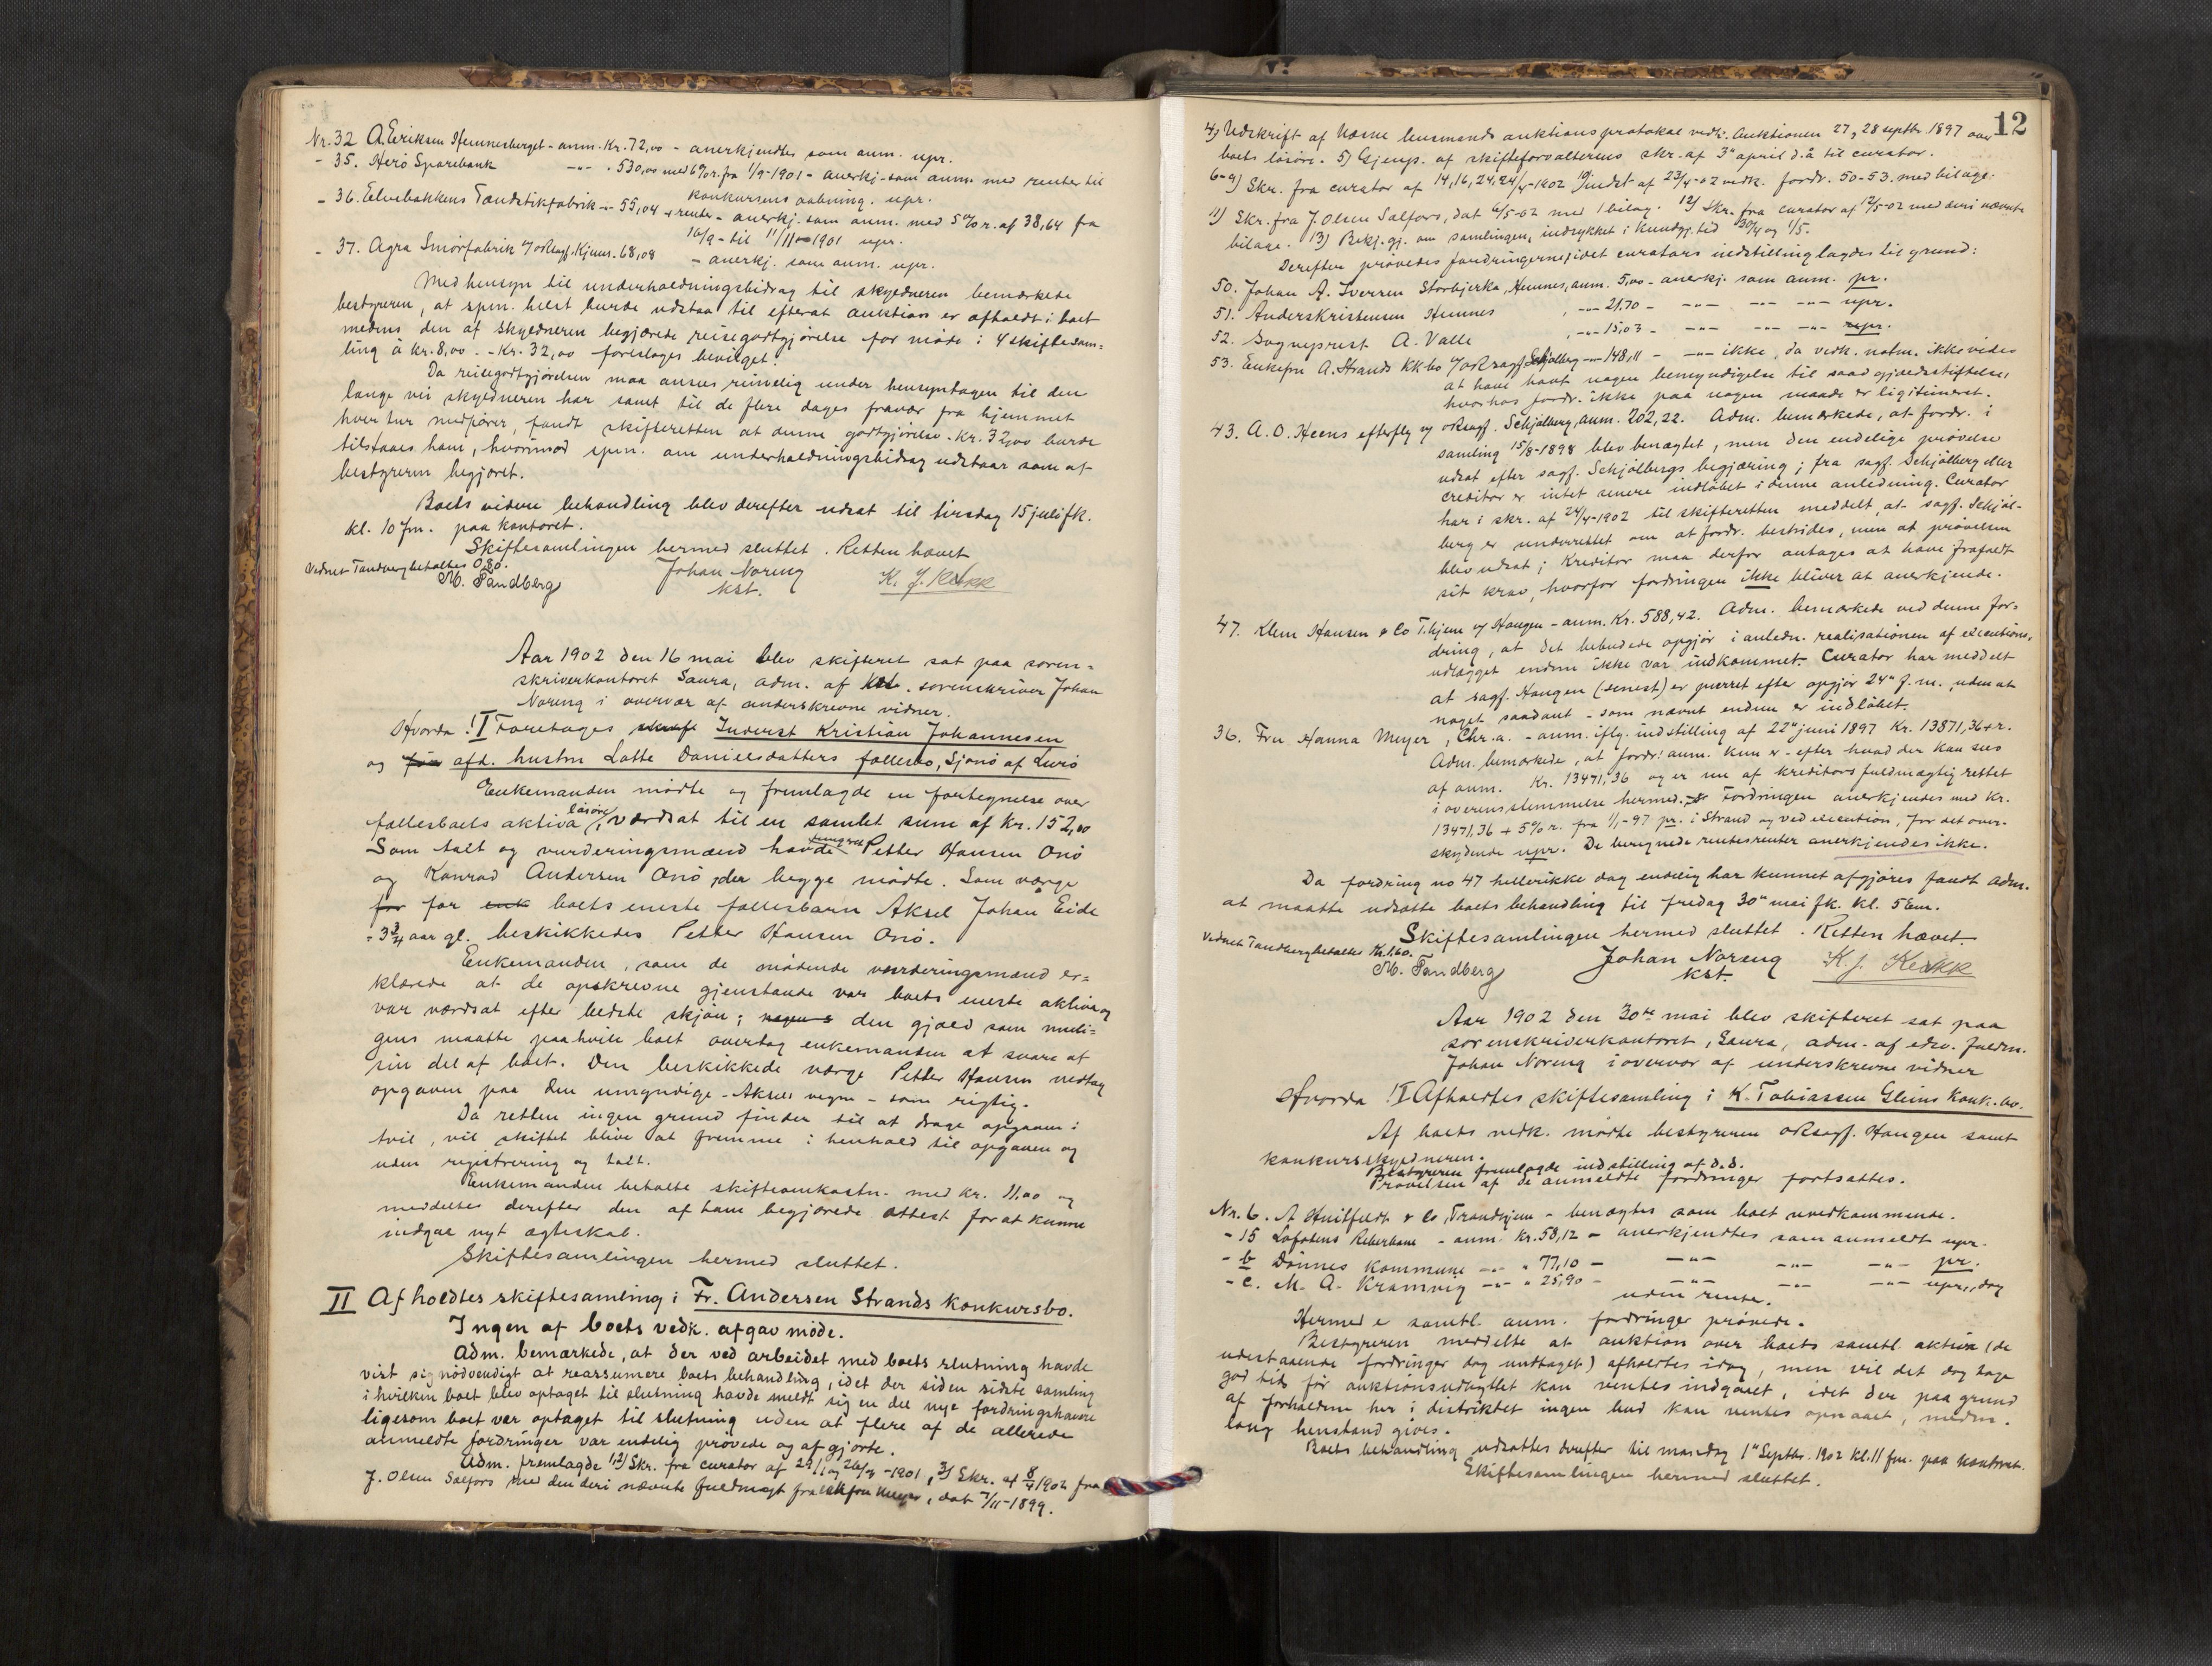 Nr. 32 A. Eriksen Hemnesberget - anm. Kr. 72,00 - anerkjendtes som anm. upr.
- 35. Herö Sparebank -"- " 530,00 med 6% r. fra 1/9-1901 - anerkj. som anm. med renter til
konkursens aabning. upr.
- 36. Elvebakkens Tændstikfabrik -"- 55,04 + renter - anerkj. som anm. med 5% r. af 38,64 fra
16/9 - til 11/11 1901 upr.
- 37. Agra Smörfabrik v/ oRsagf. Kjems. 68,08 - anerkj. som anm. upr.
Med hensyn til underholdningsbidrag til skyldneren bemærkede
bestyreren, at spm. helst burde udstaa til efterat auktion er afholdt i boet
medens den af skyldneren begjærede reisegodtgjörelse for möde i 4 skiftesam=
ling à kr. 8,00 - Kr. 32,00 foreslages bevilget.
Da reisegodtgjörelsen maa ansees rimelig under hensyntagen til den
lange vei skyldneren har samt til de flere dages fravær fra hjemmet
hver tur medförer, fandt skifteretten at denne godtgjörelse - Kr. 32,00 burde
tilstaaes ham, hvorimod spm. om underholdningsbidrag udstaar som af
bestyreren begjært.
Boets videre behandling blev derefter udsat til tirsdag 15 juli fk.
kl. 10 fm. paa kontoret.
Skiftesamlingen hermed sluttet. Retten hævet
Vidnet Tandberg betaltes 0,80.
M. Tandberg Johan Noreng K. J. Kekk
kst.
Aar 1902 den 16 mai blev skifteret sat paa soren=
skriverkontoret Saura, adm. af kst. sorenskriver Johan
Noreng i overvær af underskrevne vidner.
Hvorda! I Foretages Inderst Kristian Johannesen
og afd. hustru Lotte Danielsdatters fællesbo, Sjonö af Lurö
Enkemanden mödte og fremlagde en fortegnelse over
fællesboets aktiva, lösöre, værdsat til en samlet sum af Kr. 152,00
Som talt og vurderingsmænd havde fungeret Petter Hansen Onö
og Konrad Andersen Onö, der begge mödte. Som værge
for for enk boets eneste fællesbarn Aksel Johan Eide
- 3 3/4 aar gl. beskikkedes Petter Hansen Onö.
Enkemanden, som de mödende vurderingsmænd er=
klærede at de opskrevne gjenstande var boets eneste aktiva og
var værdsat efter bedste skjön; den gjæld som muli=
gens maatte paahvile boet overtog enkemanden at svare af
sin del af boet. Den beskikkede værge Petter Hansen vedtog
opgaven paa den umyndige - Aksels vegne - som rigtig.
Da retten ingen grund finder til at drage opgaven i
tvil, vil skiftet blive at fremme i henhold til opgaven og
uden registrering og talt.
Enkemanden betalte skifteomkostn. med kr. 11,00 og
meddeltes derefter den af ham begjærede attest for at kunne
indgaa nyt ægteskab.
Skiftesamlingen hermed sluttet.
II Afholdtes skiftesamling i Fr. Andersen Strands konkursbo.
Ingen af boets vedk. afgav möde.
Adm. bemærkede, at der ved arbeidet med boets slutning havde
vist sig nödvendigt at reassumere boets behandling, idet der siden sidste samling
i hvilken boet blev optaget til slutning havde meldt sig en del nye fordringshavere
ligesom boet var optaget til slutning uden at flere af de allerede
anmeldte fordringer var endelig prövede og afgjorte.
Adm. fremlagde 1)2) Skr. fra curator af 29/1 og 26/4 -1901, 3) Skr. af 8/4 1902 fra
J. Olsen Salfors med den deri nævnte fuldmagt fra enkefru Meyer, dat 7/11-1899.
12
4) Udskrift af Næsne lensmands auktionsprotokol vedk. auktionen 27, 28 septbr. 1897 over
boets lösöre. 5) Gjenp. af skifteforvalterens skr. af 3" april d.å til curator.
6-9) Skr. fra curator af 14, 16, 24, 24/4-1902 10) indst af 23/4-02 vedk. fordr. 50-53. med bilage.
11) Skr. fra J. Olsen Salfors, dat 6/5-02 med 1 bilag. 12) Skr. fra curator af 12/5-02 med deri nævnte
bilage. 13) Bekj.gj. om samlingen, indrykket i Kundgj. tid 30/4 og 1/5.
Derefter prövedes fordringerne, idet curators indstilling lagdes til grund:
50. Johan A. Iversen Storbjerka, Hemnes, anm. 5,00 - anerkj. som anm. pr.
51. Anders Kristensen Hemnes , -"- 21,70 - -"- -"- -"- upr.
52. Sogneprest A. Valle , -"- 15,03 - -"- -"- -"- upr.
53. Enkefru A. Strands KK bo v/ oRsagf. Schjölberg -"- 148,11 - -"- ikke, da vedk. notm. ikke vides
at have havt nogen bemyndigelse til saad gjældsstiftelse,
hvorhos fordr. ikke paa nogen maade er ligitimeret.
43. A. O. Heens efterflg v/ oRsagf. Schjölberg, anm. 202,22. Adm. bemærkede, at fordr. i
samling 15/8-1898 blev benægtet, men den endelige prövelse
udsat efter sagf. Schjölbergs begjæring; fra sagf. Schjölberg eller
creditor er intet senere indlöbet i denne anledning. Curator
har i skr. af 24/4-1902 til skifteretten meddelt, at sagf. Schjöl-
berg er underrettet om at fordr. bestrides, men at prövelsen
blev udsat; kreditor maa derfor antages at have frafaldt
sit krav, hvorfor fordringen ikke bliver at anerkjende.
47. Klem Hansen & Co T.hjem v/ Haugen - anm. Kr. 588,42. Adm. bemærkede ved denne for=
dring, at det bebudede opgjör i anledn. realisationen af executions-
udlægget endnu ikke var indkommet. Curator har meddelt
at sagf. Haugen (senest) er purret efter opgjör 24" f.m., uden at
noget saadant - som nævnt endnu er indlöbet.
36. Fru Hanna Meyer, Chr.a. - anm. iflg. indstilling af 22" juni 1897 Kr. 13871,36 + r.
Adm. bemærkede, at fordr: anm. kun er - efter hvad der kan sees
af anm. Kr. 13471,36 og er nu af kreditors fuldmægtig rettet
i overensstemmelse hermed. Fordringen anerkjendes med Kr.
13471,36 + 5% r. fra 1/1-97 pr. i Strand og ved execution, for det over-
skydende upr. De beregnede rentesrenter anerkjendes ikke.
Da fordring no 47 heller ikke dag endelig har kunnet afgjöres fandt adm.
at maatte udsætte boets behandling til fredag 30" mai fk. kl. 5 Em.
Skiftesamlingen hermed sluttet. Retten hævet.
Vidnet Tandberg betaltes Kr. 1,60.
M. Tandberg Johan Noreng K. J. Kekk
kst.
Aar 1902 den 30te mai blev skifteret sat paa
sorenskriverkontoret, Saura, adm. af edsv. fuldm.
Johan Noreng i overvær af underskrevne vidner
Hvorda! I Afholdtes skiftesamling i K. Tobiassen Gleins Konk.bo.
Af boets vedk. mödte bestyreren oRsagf. Haugen samt
konkursskyldneren.
Bestyreren fremlagde indstilling af d.d.
Prövelsen af de anmeldte fordringer fortsattes.
Nr. 6. A Huitfeldt & Co, Trondhjem - benægtes som boet uvedkommende.
- 15 Lofotens Reberbane - anm. Kr. 58,12 - anerkjendtes som anmeldt upr.
- b Dönnes kommune -"- " 77,10 - -"- -"- -"- pr.
- c. M. A. Kramvig -"- " 25,90 - -"- -"- -"- upr., dog
uden rente.
Hermed e samtl. anm. fordringer prövede.
Bestyreren meddelte at auktion over boets samtl. aktiva (de
udestaaende fordringer dog undtaget) afholdtes idag, men vil det dog tage
god tid för auktionsudbyttet kan ventes indgaaet, idet der paa grund
af forholdene her i distriktet ingen bud kan ventes opnaaet, medm.
lang henstand gives.
Boets behandling udsattes derefter til mandag 1" Septbr. 1902 kl. 11 fm. paa kontoret.
Skiftesamlingen hermed sluttet.